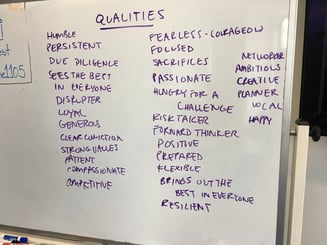 QUALITIES
HUMBLE
PERSISTENT
DUE DILIGENCE
SEES THE BEST
IN EVERYONE
DISRUPTER
LOYAL
GENEROUS
CLEAR CONVICTION
STRONG VALUES
PATIENT
COMPASSIONATE
COMPETITIVE
FEARLESS - COURAGEOUS
FOCUSED
SACRIFICES
PASSIONATE
HUNGRY FOR A
CHALLENGE
RISK TAKER
FORWARD THINKER
POSITIVE
PREPARED
FLEXIBLE
BRINGS OUT THE
BEST IN EVERYONE
RESILIENT
NETWORKER
AMBITIOUS
CREATIVE
PLANNER
VOCAL
HAPPY
e1105